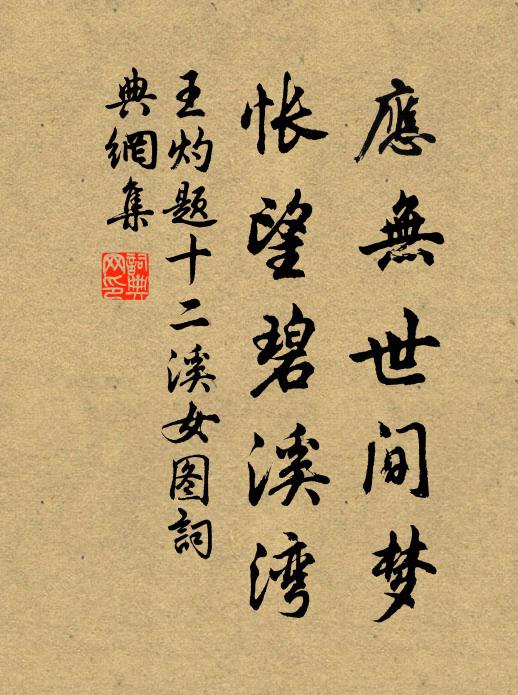 應無世间梦
怅望碧溪湾
王灼题十二溪女图詞
典網集
詞典网印